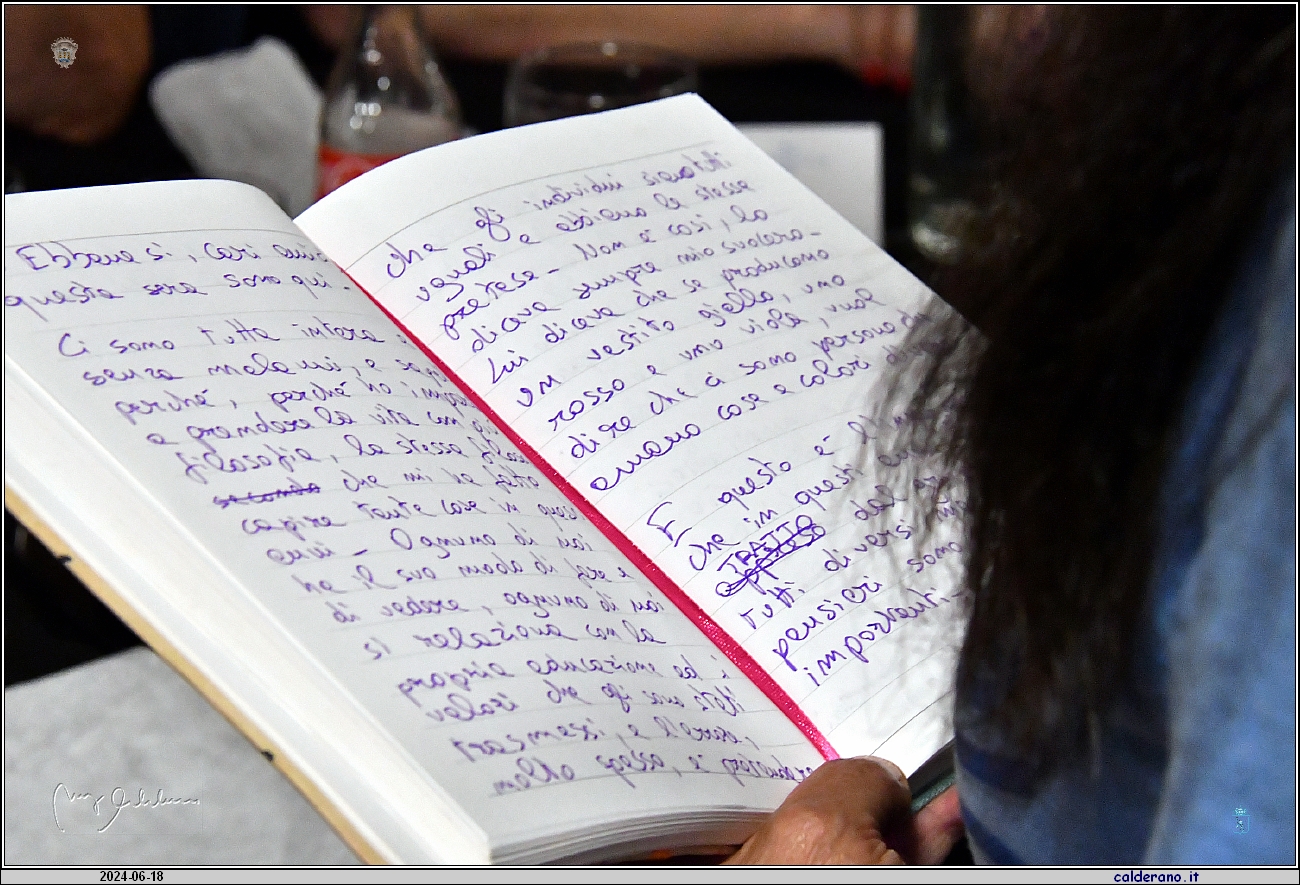 Ebbene si, cari amic
questa sera sono qui.
Ci sono tutta intera
senza melami, e sap
perché, perché ho impa
a prendere la vita con
filosofia, la stessa filoso
secondo che mi ha fatto
capire tante cose in questi
anni - Ognuno di noi
ha il suo modo di fare e
di vedere, ognuno di noi
si relaziona con la
propria educazione ed i
valori che gli sono stati
trasmessi, e l'errore,
molto spesso, e' prendere
che gli individui siano tutti
uguali e abbiano la stessa
pretesa - Non è così, lo
diceva sempre mio suocero -
Lui diceva che se producono
un vestito giallo, uno
rosso e uno viola, vuol
dire che ci sono persone
amano cose e colori
E questo é
che in questi
TRATTO dal
tutti, diversi
pensieri sono
importanti -
2024-06-18
calderano.it